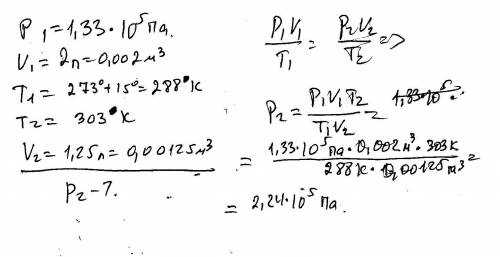 P₁=1,33·10⁵Па.
V₁=2л=0,002м³
T₁= 273°+15°=288°K
T₂= 303°K
V₂=1,25л=0,00125м³
P₂-?.
P₁V₁/T₁ = P₂V₂/T₂ =>
P₂= P₁V₁T₂/T₁V₂ =
= 1,33·10⁵Па·0,002м³·303К/288К·0,00125м³
= 2,24·10⁵Па.